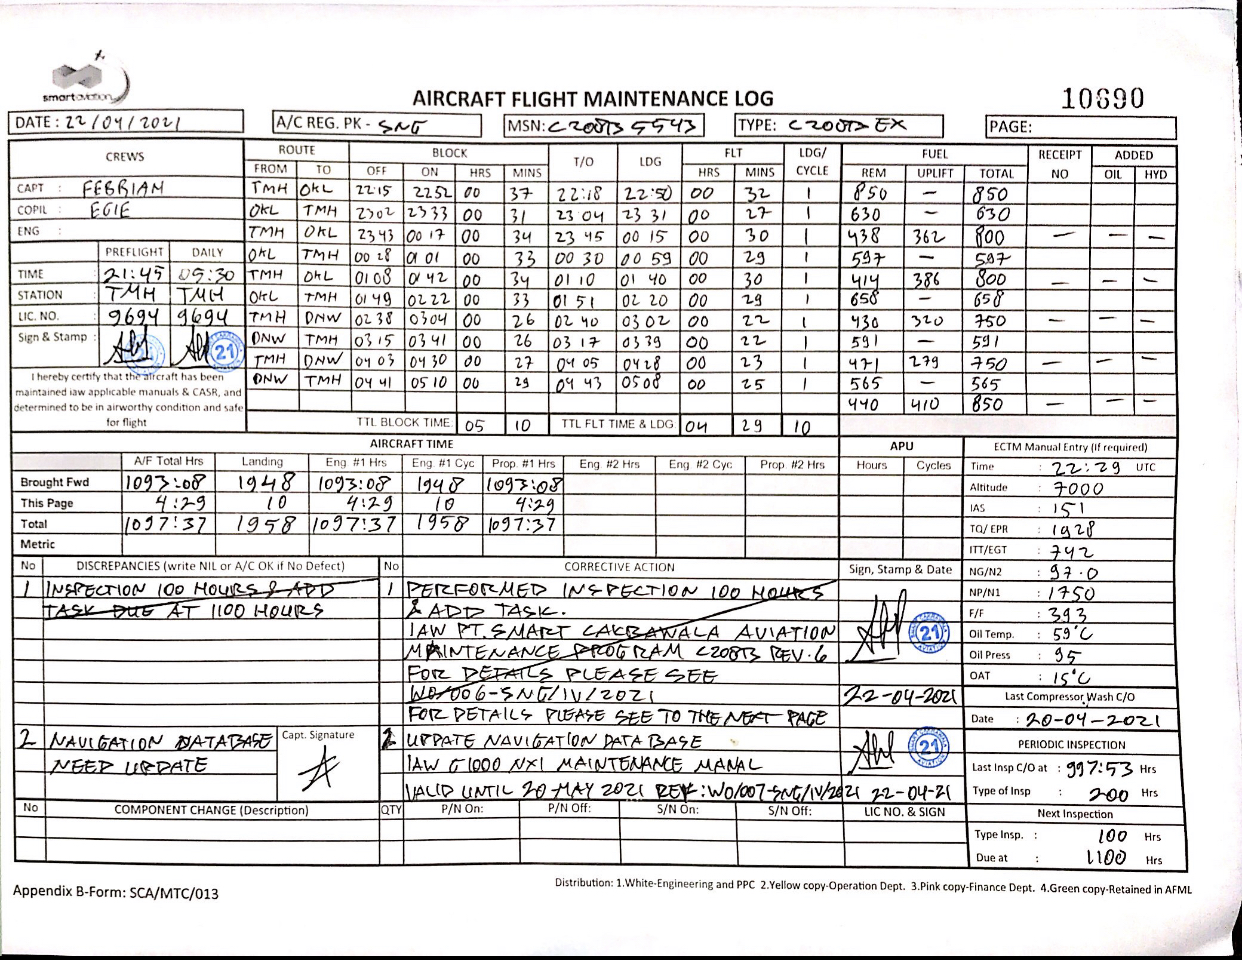 smartaviation
AIRCRAFT FLIGHT MAINTENANCE LOG
10690
DATE : 22/04/2021
A/C REG. PK - SNG
MSN: C208B 5543
TYPE: C208B EX
PAGE:
CREWS
ROUTE BLOCK T/O LDG FLT LDG/CYCLE FUEL RECEIPT NO ADDED
FROM TO OFF ON HRS MINS HRS MINS REM UPLIFT TOTAL OIL HYD
CAPT : FEBRIAM
COPIL : EGIE
ENG :
PREFLIGHT DAILY
TIME 21:45 05:30
STATION TMH TMH
LIC. NO. 9694 9694
Sign & Stamp : 21
I hereby certify that the aircraft has been
maintained iaw applicable manuals & CASR, and
determined to be in airworthy condition and safe
for flight
TMH OKL 22 15 22 52 00 37 22:18 22:50 00 32 1 850 – 850
OKL TMH 23 02 23 33 00 31 23 04 23 31 00 27 1 630 – 630
TMH OKL 23 43 00 17 00 34 23 45 00 15 00 30 1 438 362 800 – – –
OKL TMH 00 28 01 01 00 33 00 30 00 59 00 29 1 597 – 597
TMH OKL 01 08 01 42 00 34 01 10 01 40 00 30 1 414 386 800 – – –
OKL TMH 01 49 02 22 00 33 01 51 02 20 00 29 1 658 – 658
TMH DNW 02 38 03 04 00 26 02 40 03 02 00 22 1 430 320 750 – – –
DNW TMH 03 15 03 41 00 26 03 17 03 39 00 22 1 591 – 591
TMH DNW 04 03 04 30 00 27 04 05 04 28 00 23 1 471 279 750 – – –
DNW TMH 04 41 05 10 00 29 04 43 05 08 00 25 1 565 – 565
440 410 850 – – –
TTL BLOCK TIME: 05 10 TTL FLT TIME & LDG 04 29 10
AIRCRAFT TIME
A/F Total Hrs Landing Eng #1 Hrs Eng. #1 Cyc Prop. #1 Hrs Eng #2 Hrs Eng #2 Cyc Prop. #2 Hrs
Brought Fwd 1093:08 1948 1093:08 1948 1093:08
This Page 4:29 10 4:29 10 4:29
Total 1097:37 1958 1097:37 1958 1097:37
Metric
APU
Hours Cycles
ECTM Manual Entry (If required)
Time : 22:29 UTC
Altitude : 7000
IAS : 151
TQ/ EPR : 1928
ITT/EGT : 742
NG/N2 : 97.0
NP/N1 : 1750
F/F : 393
Oil Temp. : 59°C
Oil Press : 95
OAT : 15°C
Last Compressor Wash C/O
Date : 20-04-2021
PERIODIC INSPECTION
Last Insp C/O at : 997:53 Hrs
Type of Insp : 200 Hrs
Next Inspection
Type Insp. : 100 Hrs
Due at : 1100 Hrs
No DISCREPANCIES (write NIL or A/C OK if No Defect) No CORRECTIVE ACTION Sign, Stamp & Date
1 INSPECTION 100 HOURS & ADD
TASK DUE AT 1100 HOURS
1 PERFORMED INSPECTION 100 HOURS
& ADD TASK.
IAW PT. SMART CAKRAWALA AVIATION
MAINTENANCE PROGRAM C208B REV.6
FOR DETAILS PLEASE SEE
WO/006-SNG/IV/2021
FOR DETAILS PLEASE SEE TO THE NEXT PAGE
21
22-04-2021
2 NAVIGATION DATABASE
NEED UPDATE
Capt. Signature
2 UPDATE NAVIGATION DATABASE
IAW G1000 NXI MAINTENANCE MANAL
VALID UNTIL 20 MAY 2021 REF: WO/007-SNG/IV/2021 22-04-21
21
No COMPONENT CHANGE (Description) QTY P/N On: P/N Off: S/N On: S/N Off: LIC NO. & SIGN
Appendix B-Form: SCA/MTC/013
Distribution: 1.White-Engineering and PPC 2.Yellow copy-Operation Dept. 3.Pink copy-Finance Dept. 4.Green copy-Retained in AFML